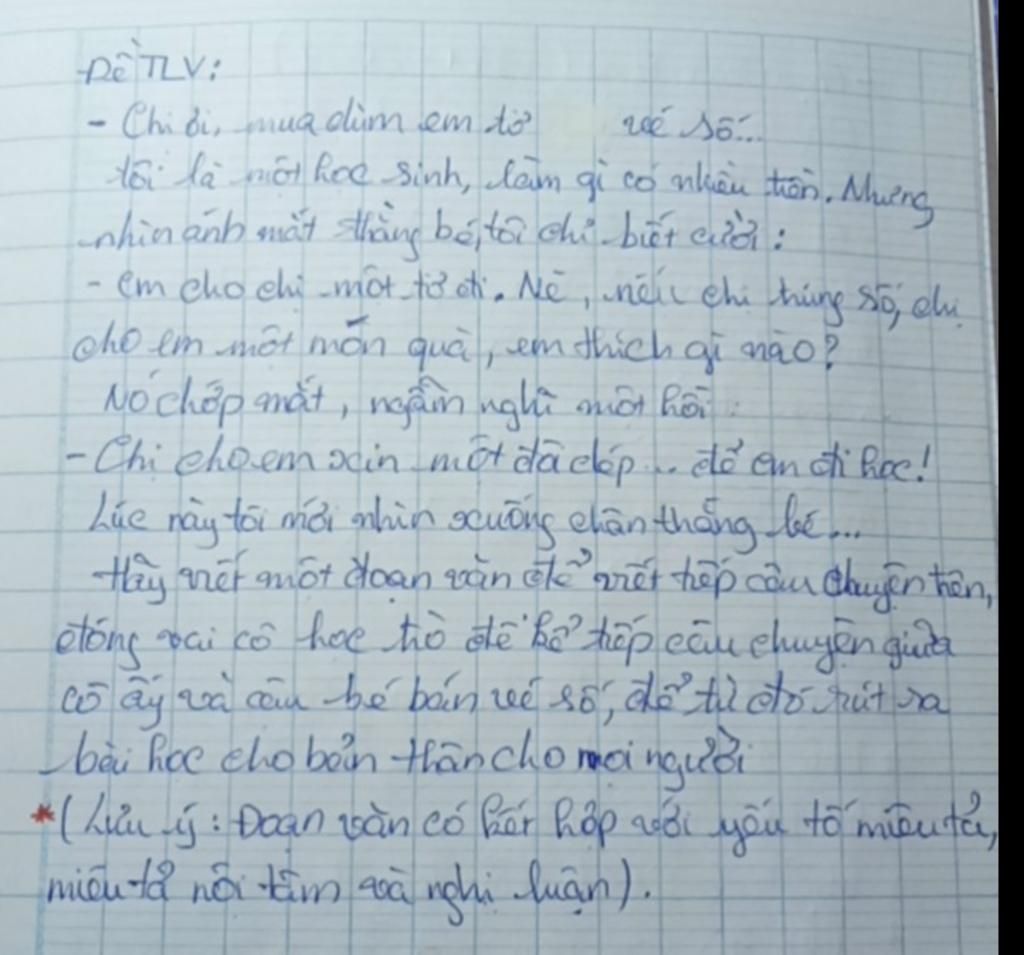 Đề TLV:
- Chị ơi, mua dùm em tờ vé số...
tôi là một học sinh, làm gì có nhiều tiền. Nhưng
nhìn ánh mắt thằng bé, tôi chỉ biết cười:
- Em cho chị một tờ đi. Nè, nếu chị trúng số, chị
cho em một món quà, em thích gì nào?
Nó chớp mắt, ngẫm nghĩ một hồi:
- Chị cho em xin một đôi dép... để em đi học!
Lúc này tôi mới nhìn xuống chân thằng bé...
Hãy viết một đoạn văn để viết tiếp câu chuyện trên,
đóng vai cô học trò để kể tiếp câu chuyện giữa
cô ấy và cậu bé bán vé số, để từ đó rút ra
bài học cho bản thân cho mọi người
*(Lưu ý: Đoạn văn có kết hợp với yếu tố miêu tả,
miêu tả nội tâm và nghị luận).